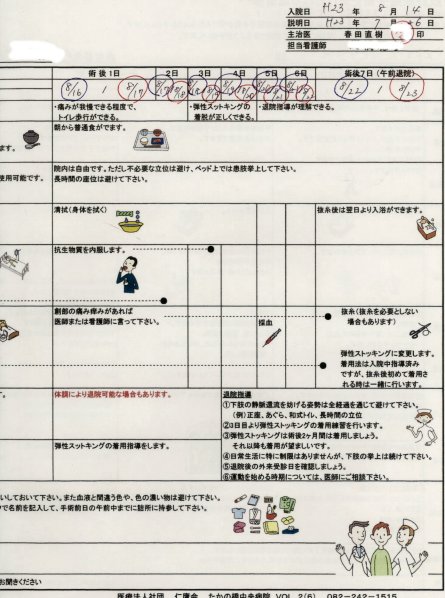 入院日 H23 年 8 月 14 日
説明日 H23 年 7 月 26 日
主治医 春田直樹 印
担当看護師
術後1日 2日 3日 4日 5日 6日 術後7日（午前退院）
8/16 / 8/17 8/22 / 8/23
・痛みが我慢できる程度で、
トイレ歩行ができる。
・弾性ストッキングの
着脱が正しくできる。
・退院指導が理解できる。
朝から普通食がでます。
ます。
院内は自由です。ただし不必要な立位は避け、ベッド上では患肢挙上して下さい。
長時間の座位は避けて下さい。
使用可能です。
清拭（身体を拭く）
抜糸後は翌日より入浴ができます。
抗生物質を内服します。
創部の痛み痒みがあれば
医師または看護師に言って下さい。
採血
抜糸（抜糸を必要としない
場合もあります）
弾性ストッキングに変更します。
着用法は入院中指導済み
ですが、抜糸後初めて着用さ
れる時は一緒に行います。
す。
体調により退院可能な場合もあります。
退院指導
①下肢の静脈還流を妨げる姿勢は全経過を通じて避けて下さい。
（例）正座、あぐら、和式トイレ、長時間の立位
②3日目より弾性ストッキングの着用練習を行います。
③弾性ストッキングは術後2ヶ月間は着用しましょう。
それ以降も着用が望ましいです。
④日常生活に特に制限はありませんが、下肢の挙上は続けて下さい。
⑤退院後の外来受診日を確認しましょう。
⑥運動を始める時期については、医師にご相談下さい。
弾性ストッキングの着用指導をします。
いしておいて下さい。また血液と間違う色や、色の濃い物は避けて下さい。
で名前を記入して、手術前日の午前中までに詰所に持参して下さい。
お聞きください
医療法人社団 仁鷹会 たかの橋中央病院 VOL 2(6) 082-242-1515